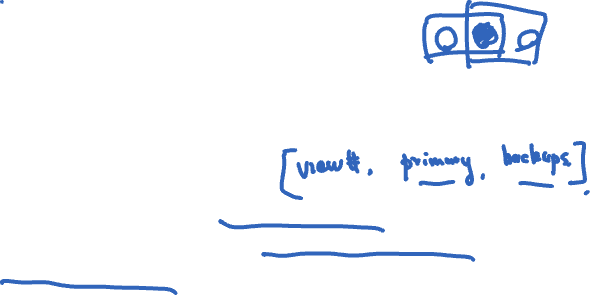 [view#, primary, backups].